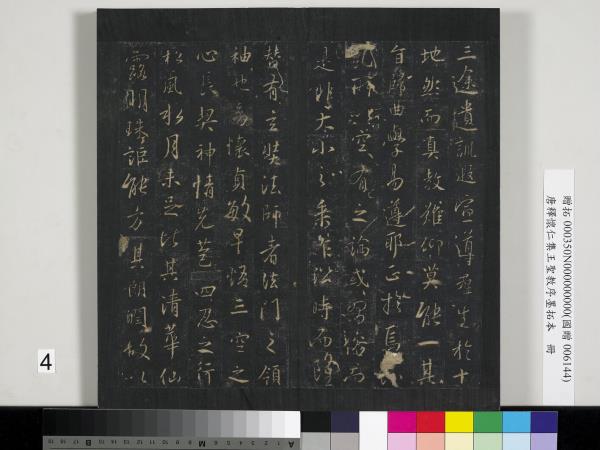 三途遺訓遐宣導群生於十
地然而真教難仰莫能一其
旨歸曲學易遵邪正於焉
糺所以空有之論或習俗而
是非大小之乘乍沿時而隆
替有玄奘法師者法門之領
袖也幼懷貞敏早悟三空之
心長契神情先苞四忍之行
松風水月未足比其清華仙
露明珠詎能方其朗潤故以
贈拓 000350N000000000(國贈 006144)
唐釋懷仁集王聖教序墨拓本 冊
4
A 1 2 3 4 5 6 M 8 9 10 11 12 13 14 15 B 17 18 19